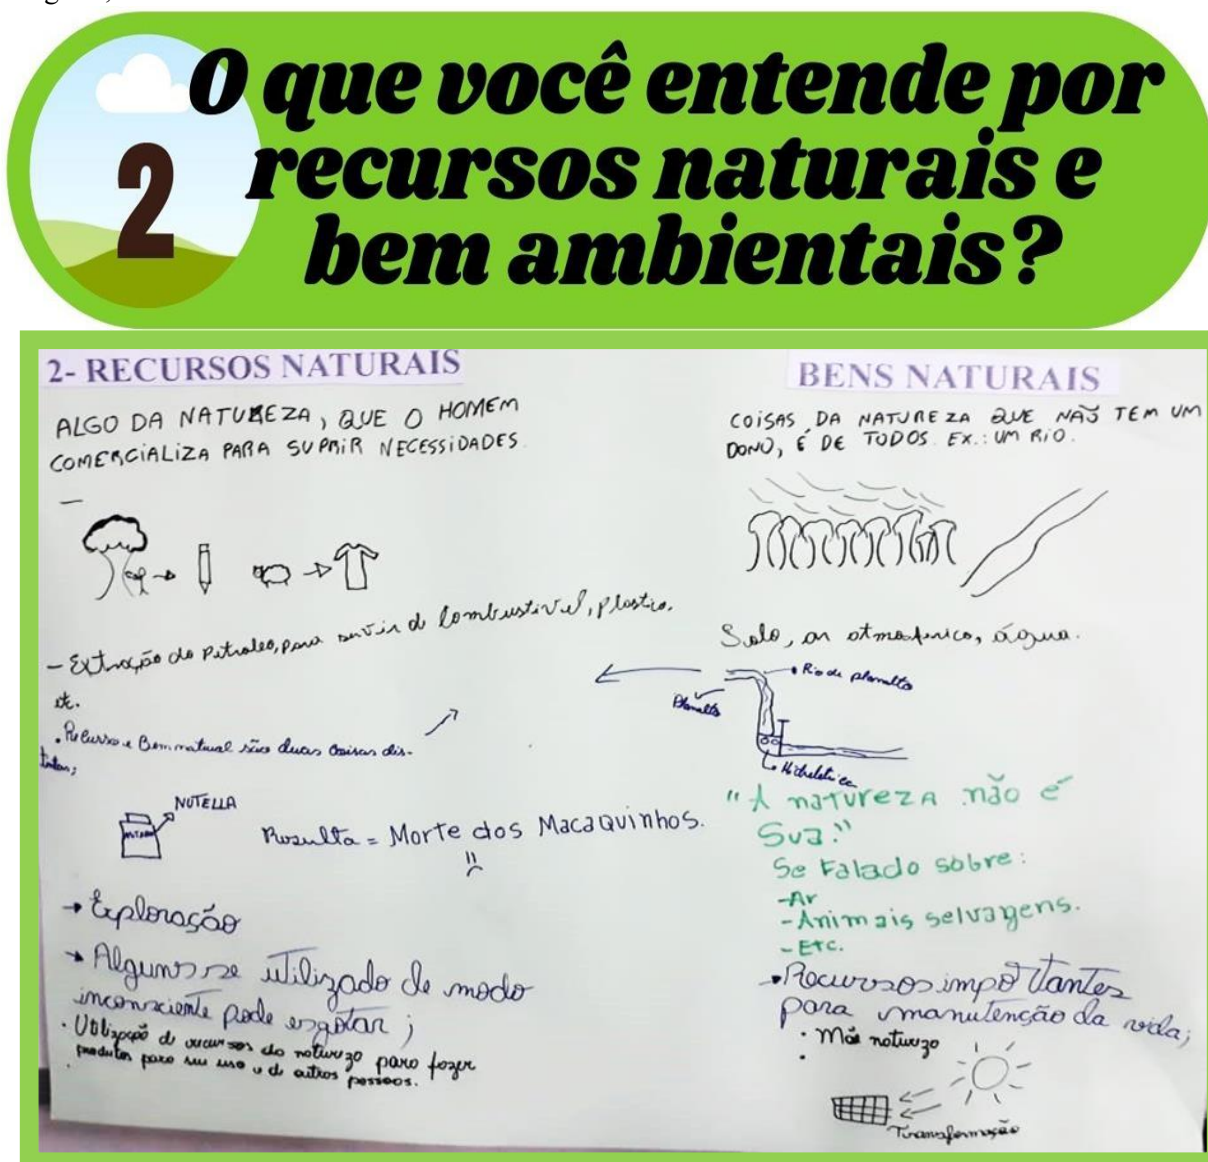 2
O que você entende por
recursos naturais e
bem ambientais?
2- RECURSOS NATURAIS
ALGO DA NATUREZA, QUE O HOMEM
COMERCIALIZA PARA SUPRIR NECESSIDADES.
- Extração do Petroleo, para servir de Combustível, plastico,
etc.
• Recurso e Bem natural são duas coisas dis-
tintas;
NUTELLA
Resulta = Morte dos Macaquinhos.
→ Exploração
→ Alguns se utilizado de modo
inconsciente pode esgotar;
• Utilização de recursos da natureza para fazer
produtos para seu uso e de outras pessoas.
BENS NATURAIS
COISAS DA NATUREZA QUE NAO TEM UM
DONO, É DE TODOS. EX.: UM RIO.
Solo, ar atmosferico, água.
Rio de planalto
Planalto
"A natureza não é
Sua."
Se Falado sobre:
-Ar
-Animais selvagens.
- Etc.
→ Recursos importantes
para manutenção da vida;
• Mãe natureza
Transformação